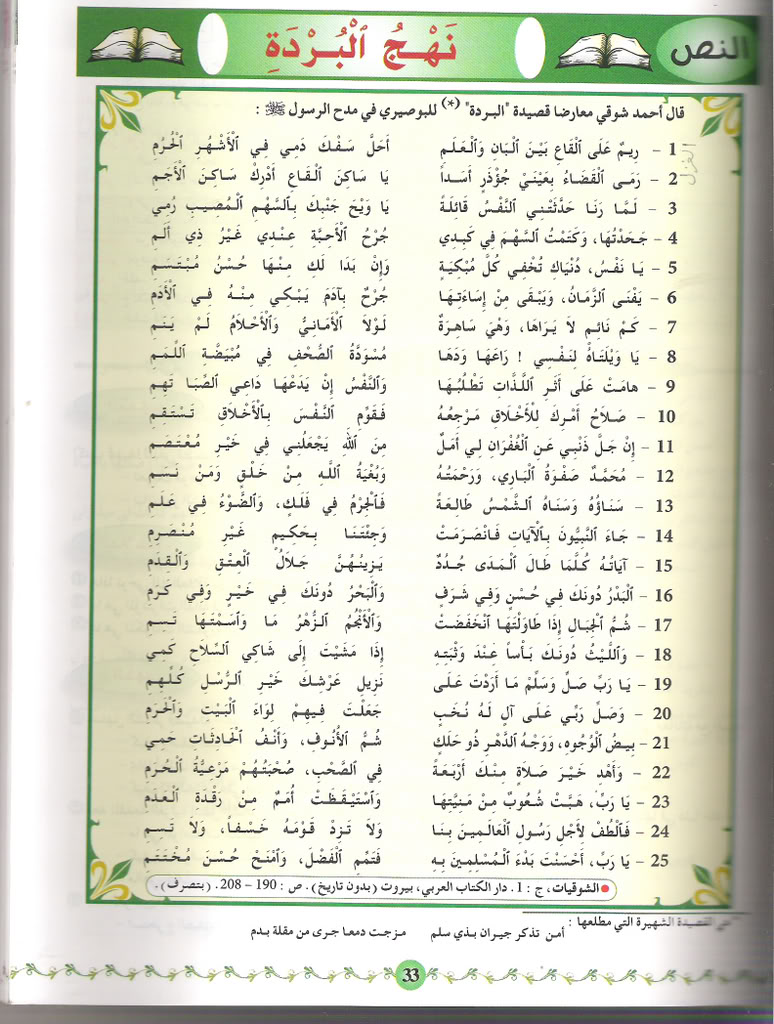 النص
نَهْجُ ٱلْبُرْدَةِ
قال أحمد شوقي معارضا قصيدة "البردة" (*) للبوصيري في مدح الرسول ﷺ :
الغزل
1 - رِيمٌ عَلَى ٱلْقَاعِ بَيْنَ ٱلْبَانِ وَٱلْعَلَمِ أَحَلَّ سَفْكَ دَمِي فِي ٱلْأَشْهُرِ ٱلْحُرُمِ
2 - رَمَى ٱلْقَضَاءُ بِعَيْنَيْ جُؤْذَرٍ أَسَداً يَا سَاكِنَ ٱلْقَاعِ أَدْرِكْ سَاكِنَ ٱلْأَجَمِ
3 - لَمَّا رَنَا حَدَّثَتْنِي ٱلنَّفْسُ قَائِلَةً يَا وَيْحَ جَنْبِكَ بِٱلسَّهْمِ ٱلْمُصِيبِ رُمِي
4 - جَحَدْتُهَا، وَكَتَمْتُ ٱلسَّهْمَ فِي كَبِدِي جُرْحُ ٱلْأَحِبَّةِ عِنْدِي غَيْرُ ذِي أَلَمِ
5 - يَا نَفْسُ، دُنْيَاكِ تُخْفِي كُلَّ مُبْكِيَةٍ وَإِنْ بَدَا لَكِ مِنْهَا حُسْنُ مُبْتَسَمِ
6 - يَفْنَى ٱلزَّمَانُ، وَيَبْقَى مِنْ إِسَاءَتِهَا جُرْحٌ بِآدَمَ يَبْكِي مِنْهُ فِي ٱلْأَدَمِ
7 - كَمْ نَائِمٍ لاَ يَرَاهَا، وَهْيَ سَاهِرَةٌ لَوْلاَ ٱلْأَمَانِيُّ وَٱلْأَحْلاَمُ لَمْ يَنَمِ
8 - يَا وَيْلَتَاهُ لِنَفْسِي ! رَاعَهَا وَدَهَا مُسْوَدَّةُ ٱلصُّحْفِ فِي مُبْيَضَّةِ ٱللَّمَمِ
9 - هامَتْ عَلَى أَثَرِ ٱللَّذَّاتِ تَطْلُبُهَا وَٱلنَّفْسُ إِنْ يَدْعُهَا دَاعِي ٱلصِّبَا تَهِمِ
10 - صَلاَحُ أَمْرِكَ لِلْأَخْلاَقِ مَرْجِعُهُ فَقَوِّمِ ٱلنَّفْسَ بِٱلْأَخْلاَقِ تَسْتَقِمِ
11 - إِنْ جَلَّ ذَنْبِي عَنِ ٱلْغُفْرَانِ لِي أَمَلٌ مِنَ ٱللهِ يَجْعَلُنِي فِي خَيْرِ مُعْتَصَمِ
12 - مُحَمَّدٌ صَفْوَةُ ٱلْبَارِي، وَرَحْمَتُهُ وَبُغْيَةُ ٱللَّهِ مِنْ خَلْقٍ وَمِنْ نَسَمِ
13 - سَنَاؤُهُ وَسَنَاهُ ٱلشَّمْسُ طَالِعَةً فَٱلْجِرْمُ فِي فَلَكٍ، وَٱلضَّوْءُ فِي عَلَمِ
14 - جَاءَ ٱلنَّبِيُّونَ بِٱلْآيَاتِ فَٱنْصَرَمَتْ وَجِئْتَنَا بِحَكِيمٍ غَيْرِ مُنْصَرِمِ
15 - آيَاتُهُ كُلَّمَا طَالَ ٱلْمَدَى جُدُدٌ يَزِينُهُنَّ جَلاَلُ ٱلْعِتْقِ وَٱلْقِدَمِ
16 - ٱلْبَدْرُ دُونَكَ فِي حُسْنٍ وَفِي شَرَفٍ وَٱلْبَحْرُ دُونَكَ فِي خَيْرٍ وَفِي كَرَمِ
17 - شُمُّ ٱلْجِبَالِ إِذَا طَاوَلْتَهَا ٱنْخَفَضَتْ وَٱلْأَنْجُمُ ٱلزُّهْرُ مَا وَاسَمْتَهَا تَسِمِ
18 - وَٱللَّيْثُ دُونَكَ بَأْساً عِنْدَ وَثْبَتِهِ إِذَا مَشَيْتَ إِلَى شَاكِي ٱلسِّلاَحِ كَمِي
19 - يَا رَبِّ صَلِّ وَسَلِّمْ مَا أَرَدْتَ عَلَى نَزِيلِ عَرْشِكَ خَيْرِ ٱلرُّسْلِ كُلِّهِمِ
20 - وَصَلِّ رَبِّي عَلَى آلٍ لَهُ نُخَبٍ جَعَلْتَ فِيهِمْ لِوَاءَ ٱلْبَيْتِ وَٱلْحَرَمِ
21 - بِيضُ ٱلْوُجُوهِ، وَوَجْهُ ٱلدَّهْرِ ذُو حَلَكٍ شُمُّ ٱلْأُنُوفِ، وَأَنْفُ ٱلْحَادِثَاتِ حَمِي
22 - وَأَهْدِ خَيْرَ صَلاَةٍ مِنْكَ أَرْبَعَةً فِي ٱلصَّحْبِ، صُحْبَتُهُمْ مَرْعِيَّةُ ٱلْحُرَمِ
23 - يَا رَبِّ، هَبَّتْ شُعُوبٌ مِنْ مَنِيَّتِهَا وَٱسْتَيْقَظَتْ أُمَمٌ مِنْ رَقْدَةِ ٱلْعَدَمِ
24 - فَٱلْطُفْ لِأَجْلِ رَسُولِ ٱلْعَالَمِينَ بِنَا وَلاَ تَزِدْ قَوْمَهُ خَسْفاً، وَلاَ تَسِمِ
25 - يَا رَبِّ، أَحْسَنْتَ بَدْءَ ٱلْمُسْلِمِينَ بِهِ فَتَمِّمِ ٱلْفَضْلَ، وَٱمْنَحْ حُسْنَ مُخْتَتَمِ
الشوقيات، ج : 1. دار الكتاب العربي، بيروت (بدون تاريخ). ص : 190 – 208. (بتصرف).
القصيدة الشهيرة التي مطلعها :
أمن تذكر جيران بذي سلم مزجت دمعا جرى من مقلة بدم
33